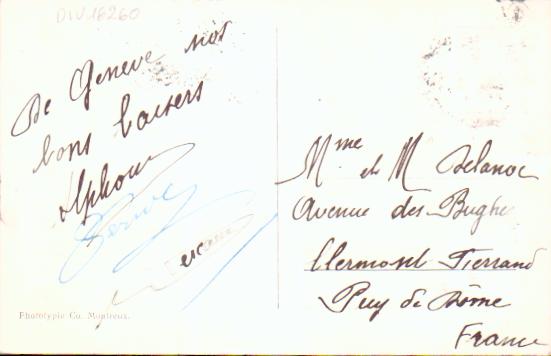 DIV 16260
De Geneve nos
bons baisers
Alphonse
Mme et M Delanoe
Avenue des Bughe
Clermont Ferrand
Puy de Dôme
France
Phototypie Co. Montreux.